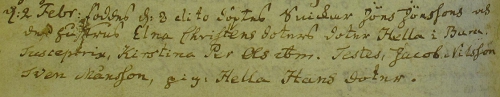 d: 2 Febr: föddes d: 3 dito döptes Jöns Jönssons
Hustrus Elna Christens doters doter Hella i Bara.
Susceptrix, Kirstina Per Ols Testes, Jacob Nilsson
Sven Månsson, pig: Hella Hans doter.